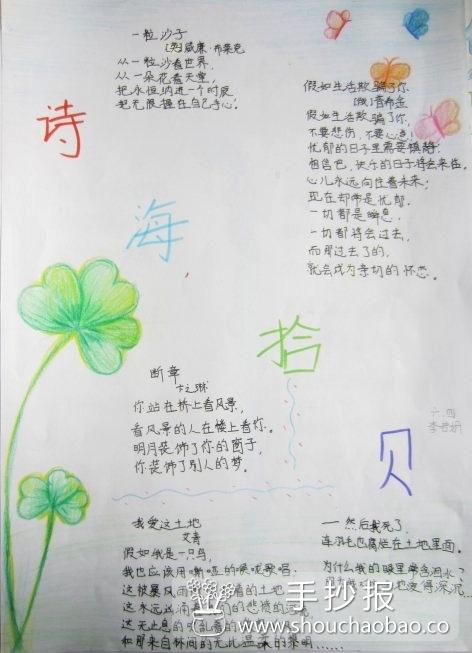 一粒沙子
[英]威廉·布莱克
从一粒沙看世界,
从一朵花看天堂,
把永恒纳进一个时辰
把无限握在自己手心。
诗
海
拾
贝
假如生活欺骗了你
(俄)普希金
假如生活欺骗了你,
不要悲伤,不要心急!
忧郁的日子里需要镇静:
相信吧,快乐的日子将会来临。
心儿永远向往着未来;
现在却常是忧郁.
一切都是瞬息.
一切都将会过去,
而那过去了的,
就会成为亲切的怀恋。
断章
卞之琳
你站在桥上看风景,
看风景的人在楼上看你。
明月装饰了你的窗子,
你装饰了别人的梦。
六.四
我爱这土地
艾青
假如我是一只鸟,
我也应该用嘶哑的喉咙歌唱:
这被暴风雨
着的土地
这永远汹涌着
们的悲愤的河
这无止息
和那来自林间的无比温柔的黎明……
——然后我死了,
连羽毛也腐烂在土地里面。
为什么我的眼里常含泪水?
爱得深沉……
手抄报
www.shouchaobao.co